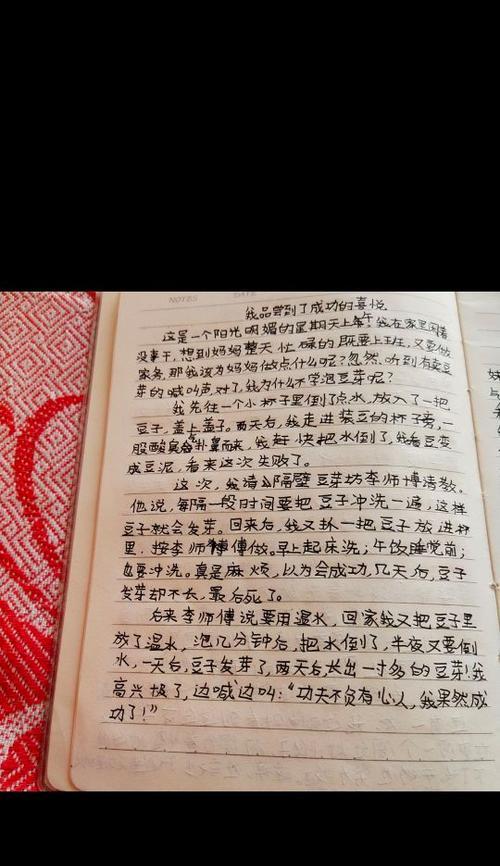 NOTES DATE
我品尝到了成功的喜悦
这是一个阳光明媚的星期天上午，我在家里闲着
没事干，想到妈妈整天忙碌的既要上班，又要做
家务，那我该为妈妈做点什么呢？忽然，听到有卖豆
芽的喊叫声，对了，我为什么不学泡豆芽呢？
我先往一个小杯子里倒了点水，放入了一把
豆子，盖上盖子。两天后，我走进装豆的杯子旁，一
股酸臭会扑鼻而来，我赶快把水倒了，我看豆变
成豆泥，看来这次失败了。
这次，我得隔壁豆芽坊李师博请教。
他说，每隔一段时间要把豆子冲洗一遍，这样
豆子就会发芽。回来后，我又抓一把豆子放进杯
里，按李师傅做。早上起床洗；午饭睡觉前；
也要冲洗。真是麻烦，以为会成功，几天后，豆子
发芽却不长，最后死了。
后来李师傅说要用温水，回家我又把豆子里
放了温水，泡几分钟后，把水倒了，半夜又要倒
水，一天后，豆子发芽了，两天后，长出一寸多的豆芽！我
高兴极了，边喊边叫：“功夫不负有心人，我果然成
功了！”